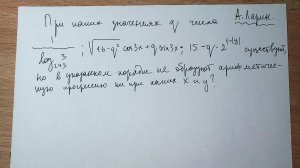 При каких значениях q числа А.Ларин.
1/log₂₄₃ 3 ; √(16-q²) cos3x+q sin3x; 15-q·2^(1-|y|) существуют,
но в указанном порядке не образуют арифметиче-
скую прогрессию ни при каких x и y?